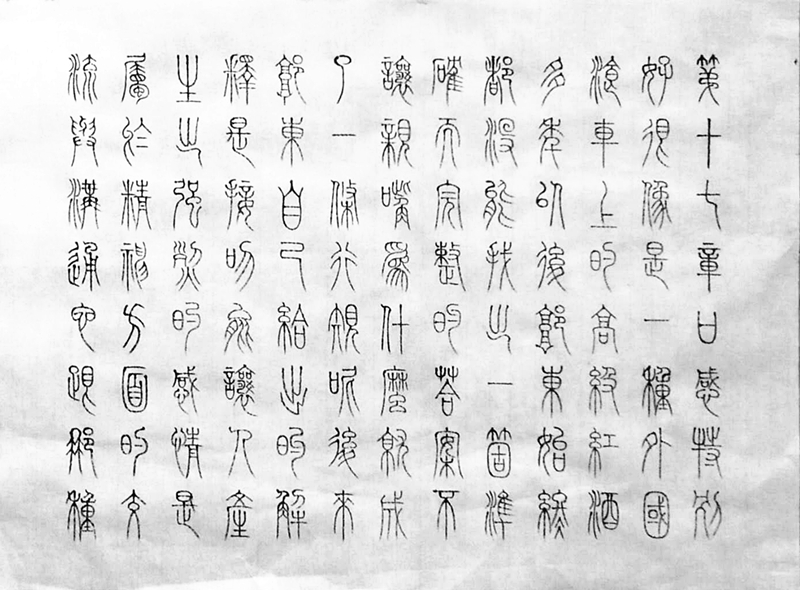 第十七章口感特別
好很像是一種外國
車上的高級紅酒
多年以後東始終
都沒能找出一箇準
確而完整的答案不
讓親嘴爲什麼就成
了一條行規呢後來
東自己給出的解
釋是接吻讓人產
生出強烈的感情是
屬於精神方面的交
流與溝通它跟那種